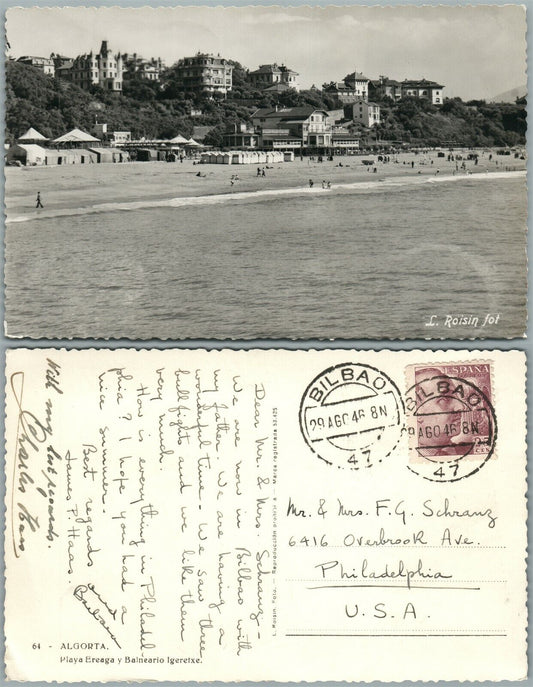 L. Roisin fot
Dear Mr. & Mrs. Schranz-
We are now in Bilbao with
my father. We are having a
wonderful time - We saw three
bullfights and we like them
very much.
How is everything in Philadel-
phia? I hope you had a
nice summer.
Best regards
James P. Haas.
and Barbara
With my best regards.
Charles Haas
BILBAO
29 AGO 46 8N
47
BILBAO
29 AGO 46 8N
47
ESPAÑA
CENTS
Mr. & Mrs. F.G. Schranz
6416 Overbrook Ave.
Philadelphia
U.S.A.
64 - ALGORTA.
Playa Ereaga y Balneario Igeretxe.